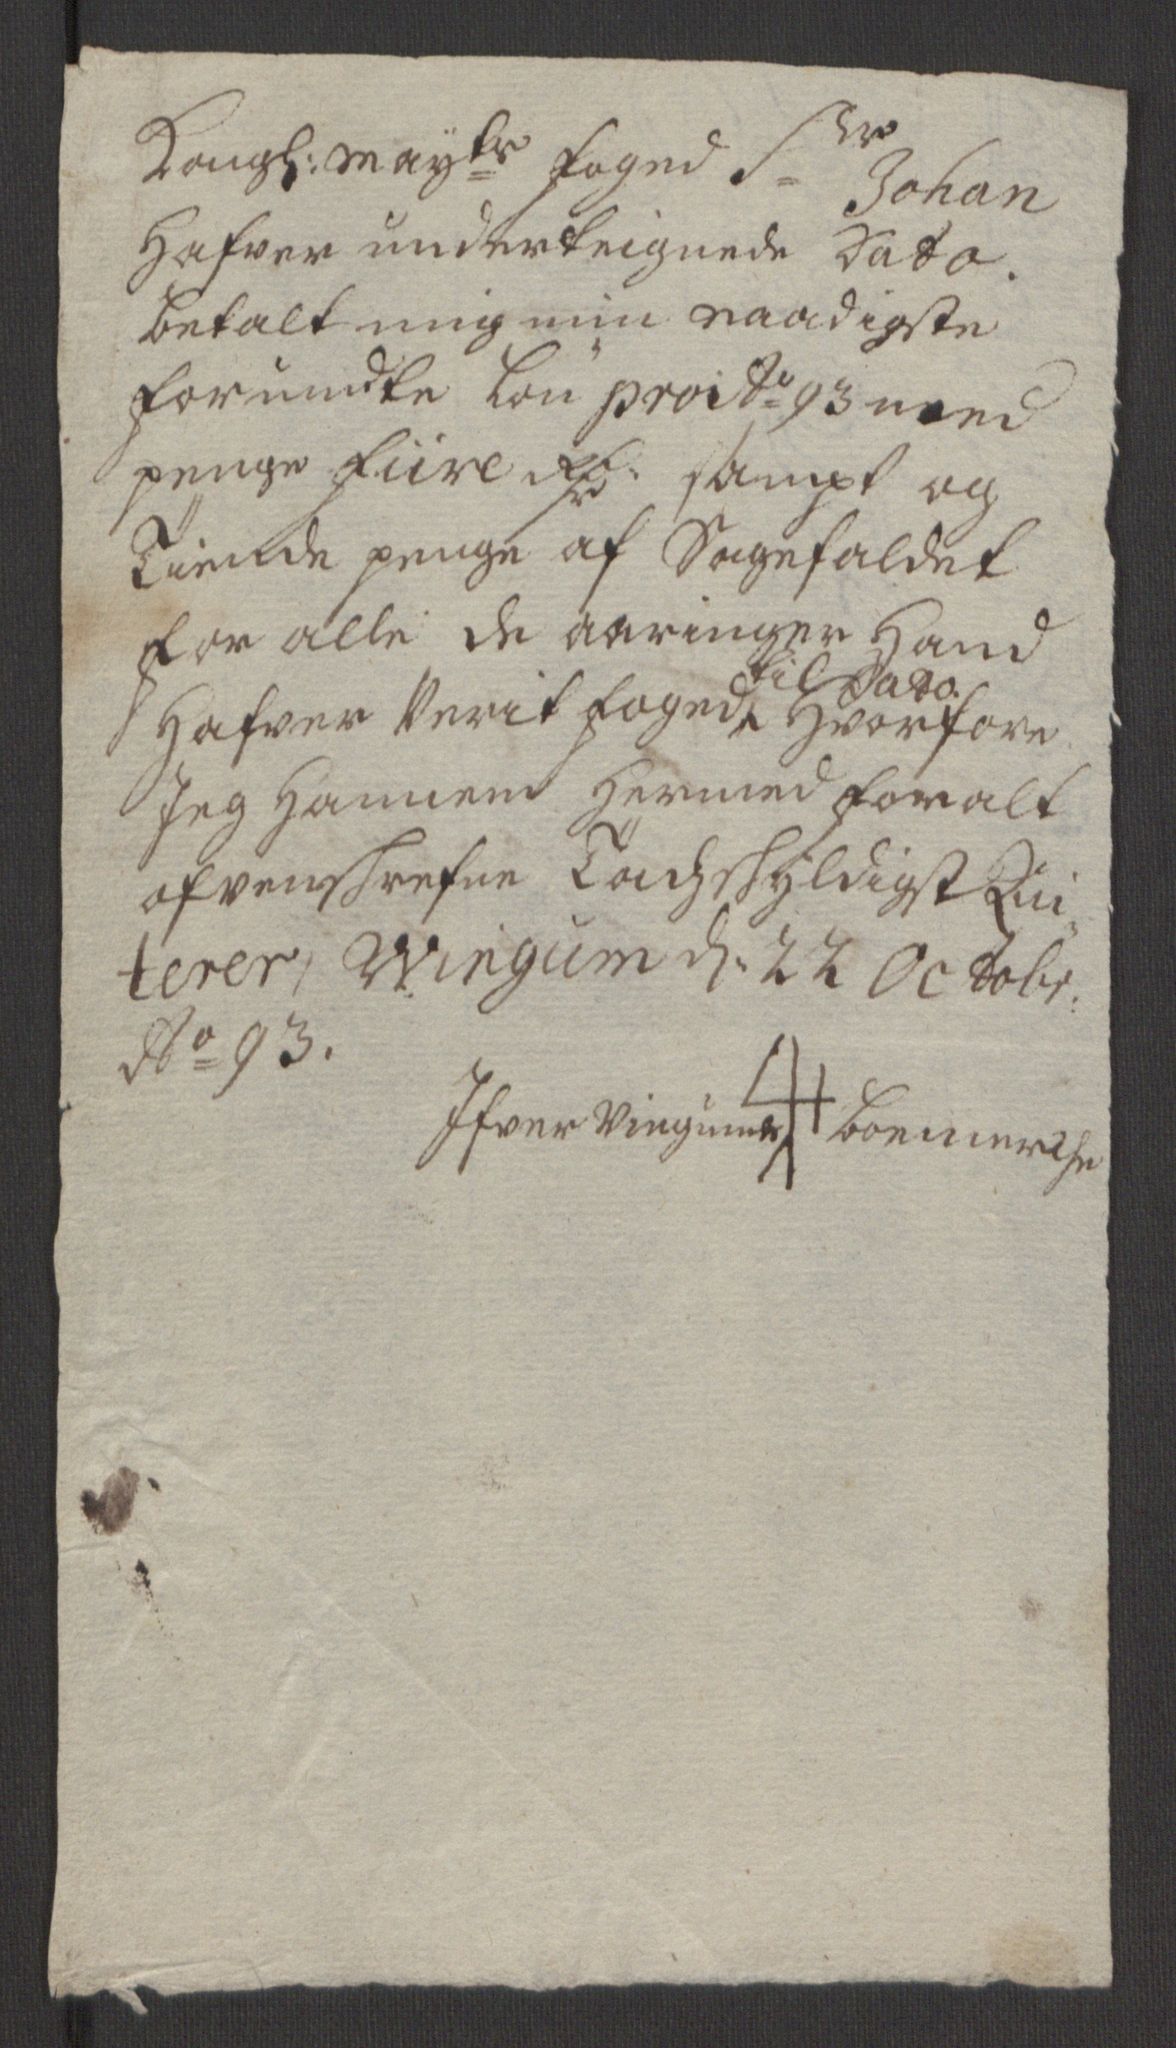 Kongl: mayts foged Sr Johan
Hafver underteignede Dato.
betalt mig min naadigste
forundte Lön pro Ao 93 med
penge fiire rdr sampt og
Tiende penge af Sagefaldet
for alle de aaringer Hand
Hafver Verit foged, til Dato. Hvorfore
Jeg Hannem Hermed for alt
ofvenschrefne Tachschyldigst Qvi
terer, Wiegum d. 22 Octobr.
Ao 93.
Ifver Viegum boemerche